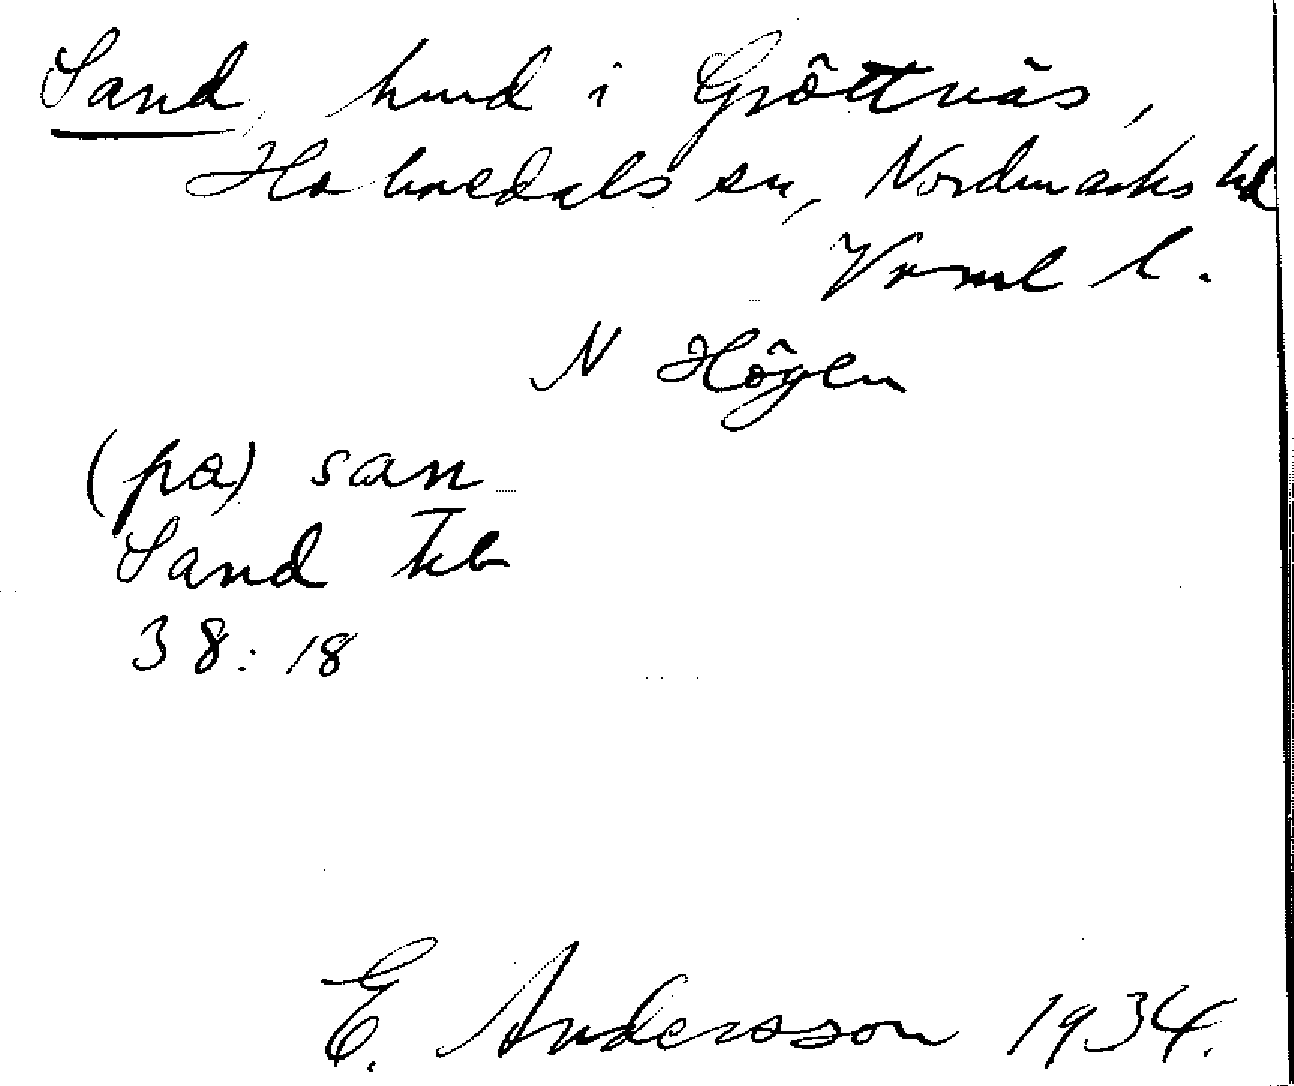 Sand, hmd i Gröttnäs,
Holmedals sn, Nordmarks hd
Värml l.
N Högen
(pa) san
Sand Kb
38:18
E. Andersson 1934.